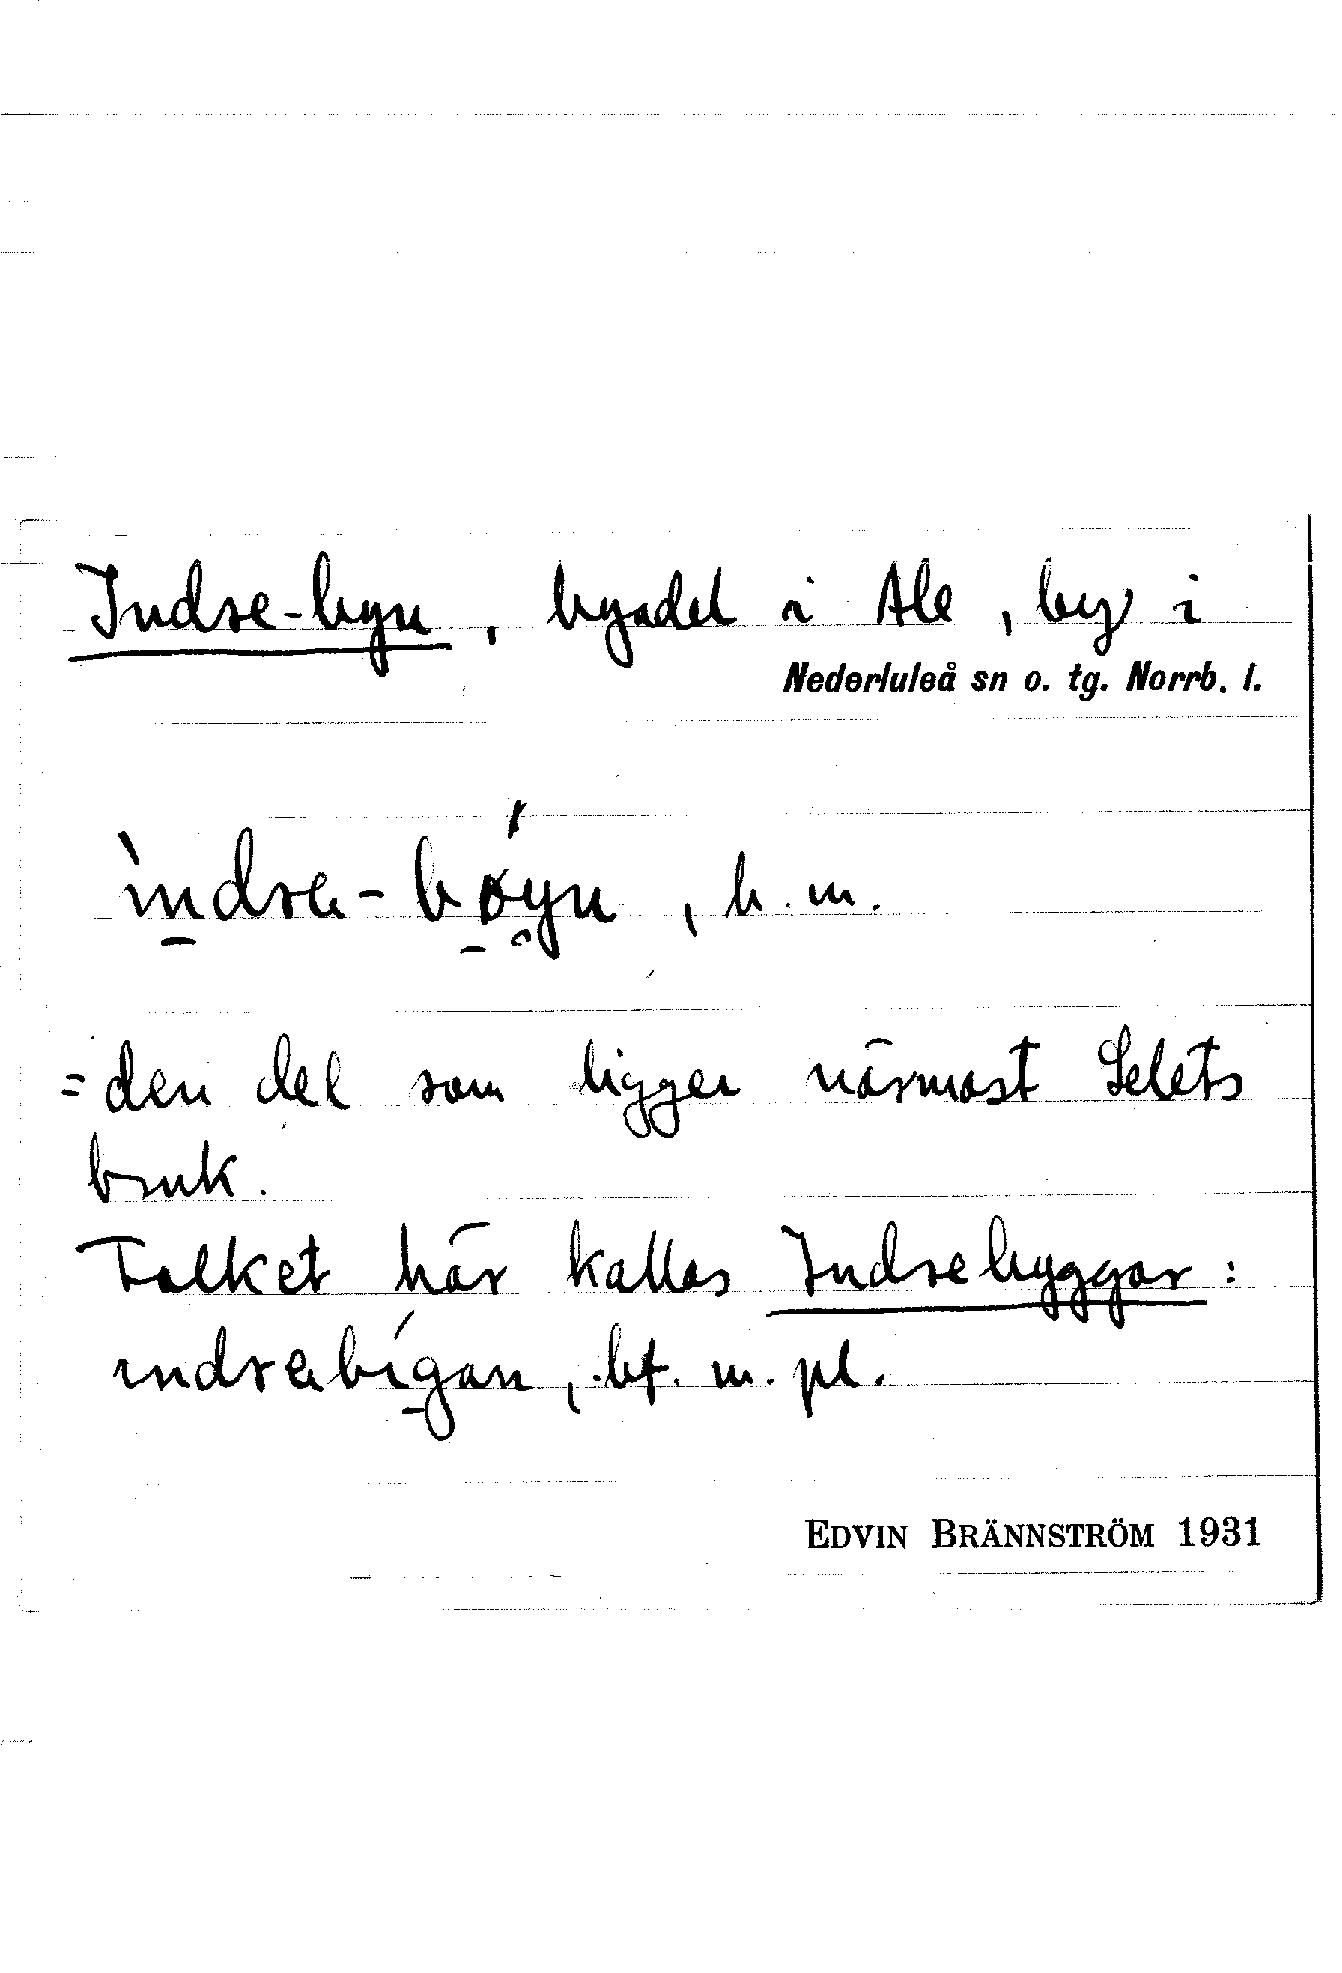 Indre-byn, bydel i Ale, by i
Nederluleå sn o. tg. Norrb. l.
ìndrə-bǿyn, b. m.
= den del som ligger närmast Selets
bruk.
Folket här kallas Indrebyggar:
indrəbígan, bf. m. pl.
EDVIN BRÄNNSTRÖM 1931